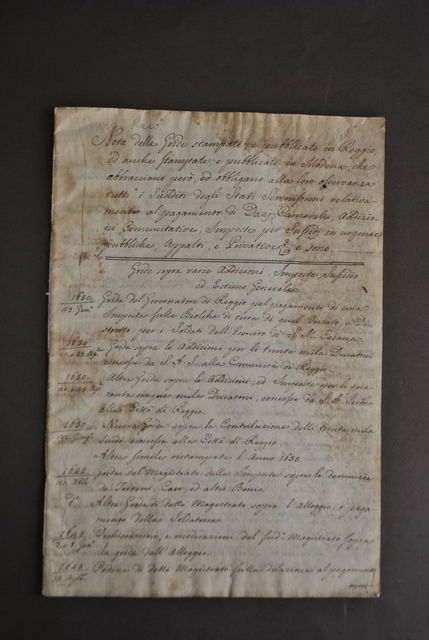 Nota delle Gride stampate, e pubblicate in Reggio,
ed anche stampate, e pubblicate in Modena che
abbracciano però, ed obbligano alla loro osservanza
tutti i Sudditi degli Stati Serenissimi relativa
mente al pagamento di Dazj Camerali, Addizio
ni Comunitative, Imposte per Sussidj in urgenze
pubbliche, Appalti, e Privative &c. e sono.
Gride sopra varie Addizioni, Imposte, Sussidio
ed Estimo Generale
1630 Grida del Governatore di Reggio pel pagamento di una
23. Genº Imposta sulle Biolche di terra di quel Ducato, e Di
stretto per i Soldati dell'Esercito di S. M. Cesarea.
1630 Grida sopra le Addizioni per li trenta mila Ducatoni
concesse da S. A. S. alla Comunità di Reggio.
1630 Altra Grida sopra le Addizioni, ed Imposte per li sesa
ranta cinque mila Ducatoni, concesse da S. A. Serma
alla Città di Reggio.
1631 Nuova Grida sopra la Contribuzione delli trenta mila
Scudi concessa alla Città di Reggio
Altra simile ristampata l'Anno 1633.
1640 Grida del Magistrato delle Imposte sopra le denuncie
da Terreni, Case, ed altri Beni.
dº Altra Grida di detto Magistrato sopra l'Alloggio, e paga
mento della Soldatesca
1641 Dichiarazione, e moderazione del sudº Magistrato sopra
la grida dell'Alloggio.
1641 Ordine di detto Magistrato sulla dilazione al pagamento